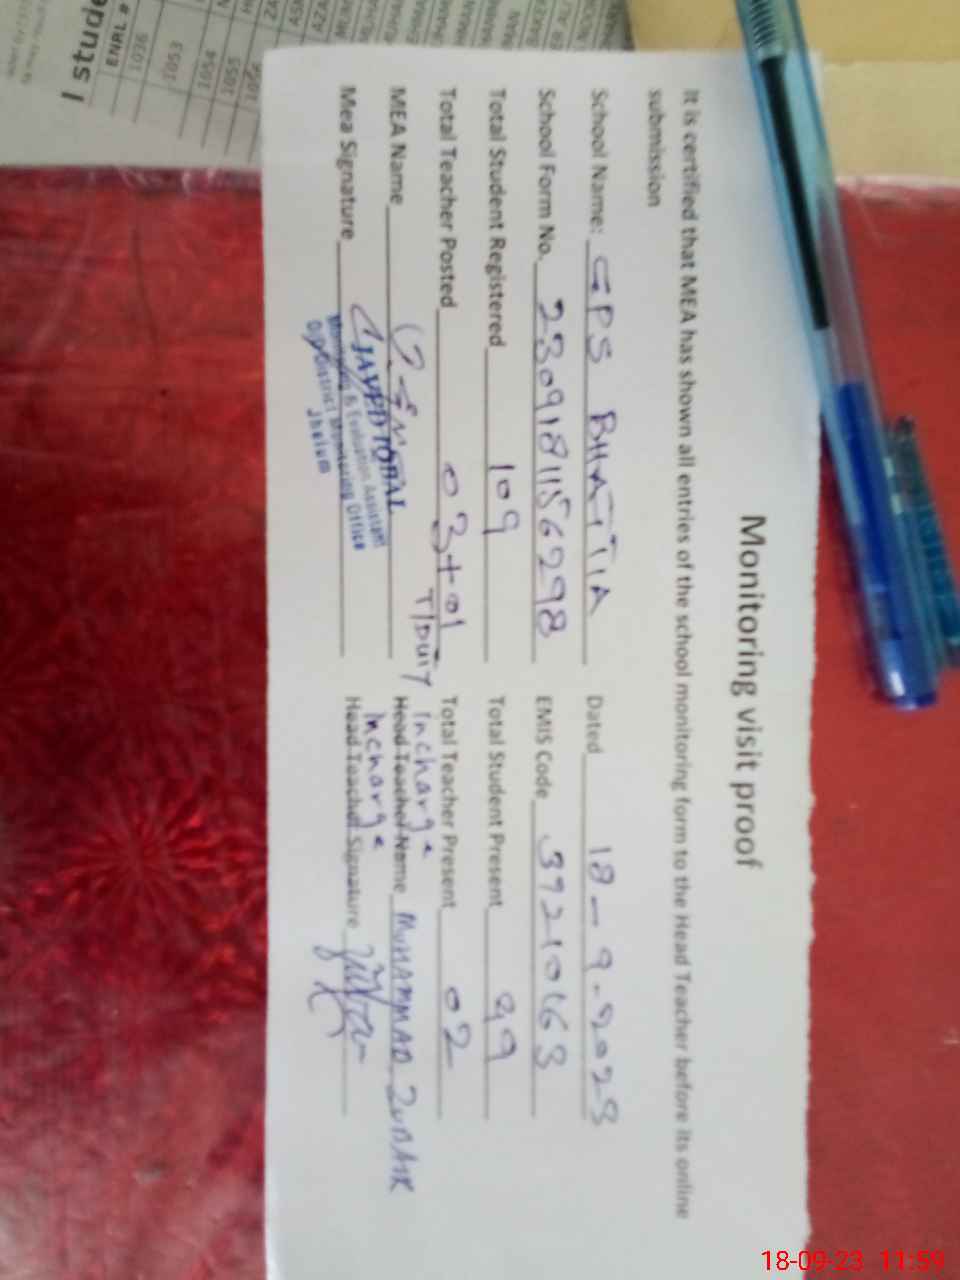 Monitoring visit proof
It is certified that MEA has shown all entries of the school monitoring form to the Head Teacher before its online
submission
School Name: GPS BHATTIA Dated 18-9-2023
School Form No. 2309181156298 EMIS Code 37210163
Total Student Registered 109 Total Student Present 89
Total Teacher Posted 03+01 Total Teacher Present 02
T/DUTY Incharge
MEA Name Head Teacher Name MUHAMMAD ZUBAIR
JAVED IQBAL Incharge
Mea Signature Head Teacher Signature
Monitoring & Evaluation Assistant
District Monitoring Office
Jhelum
I stude
ENRL #
1036
1053
1054
1055
18-09-23 11:59